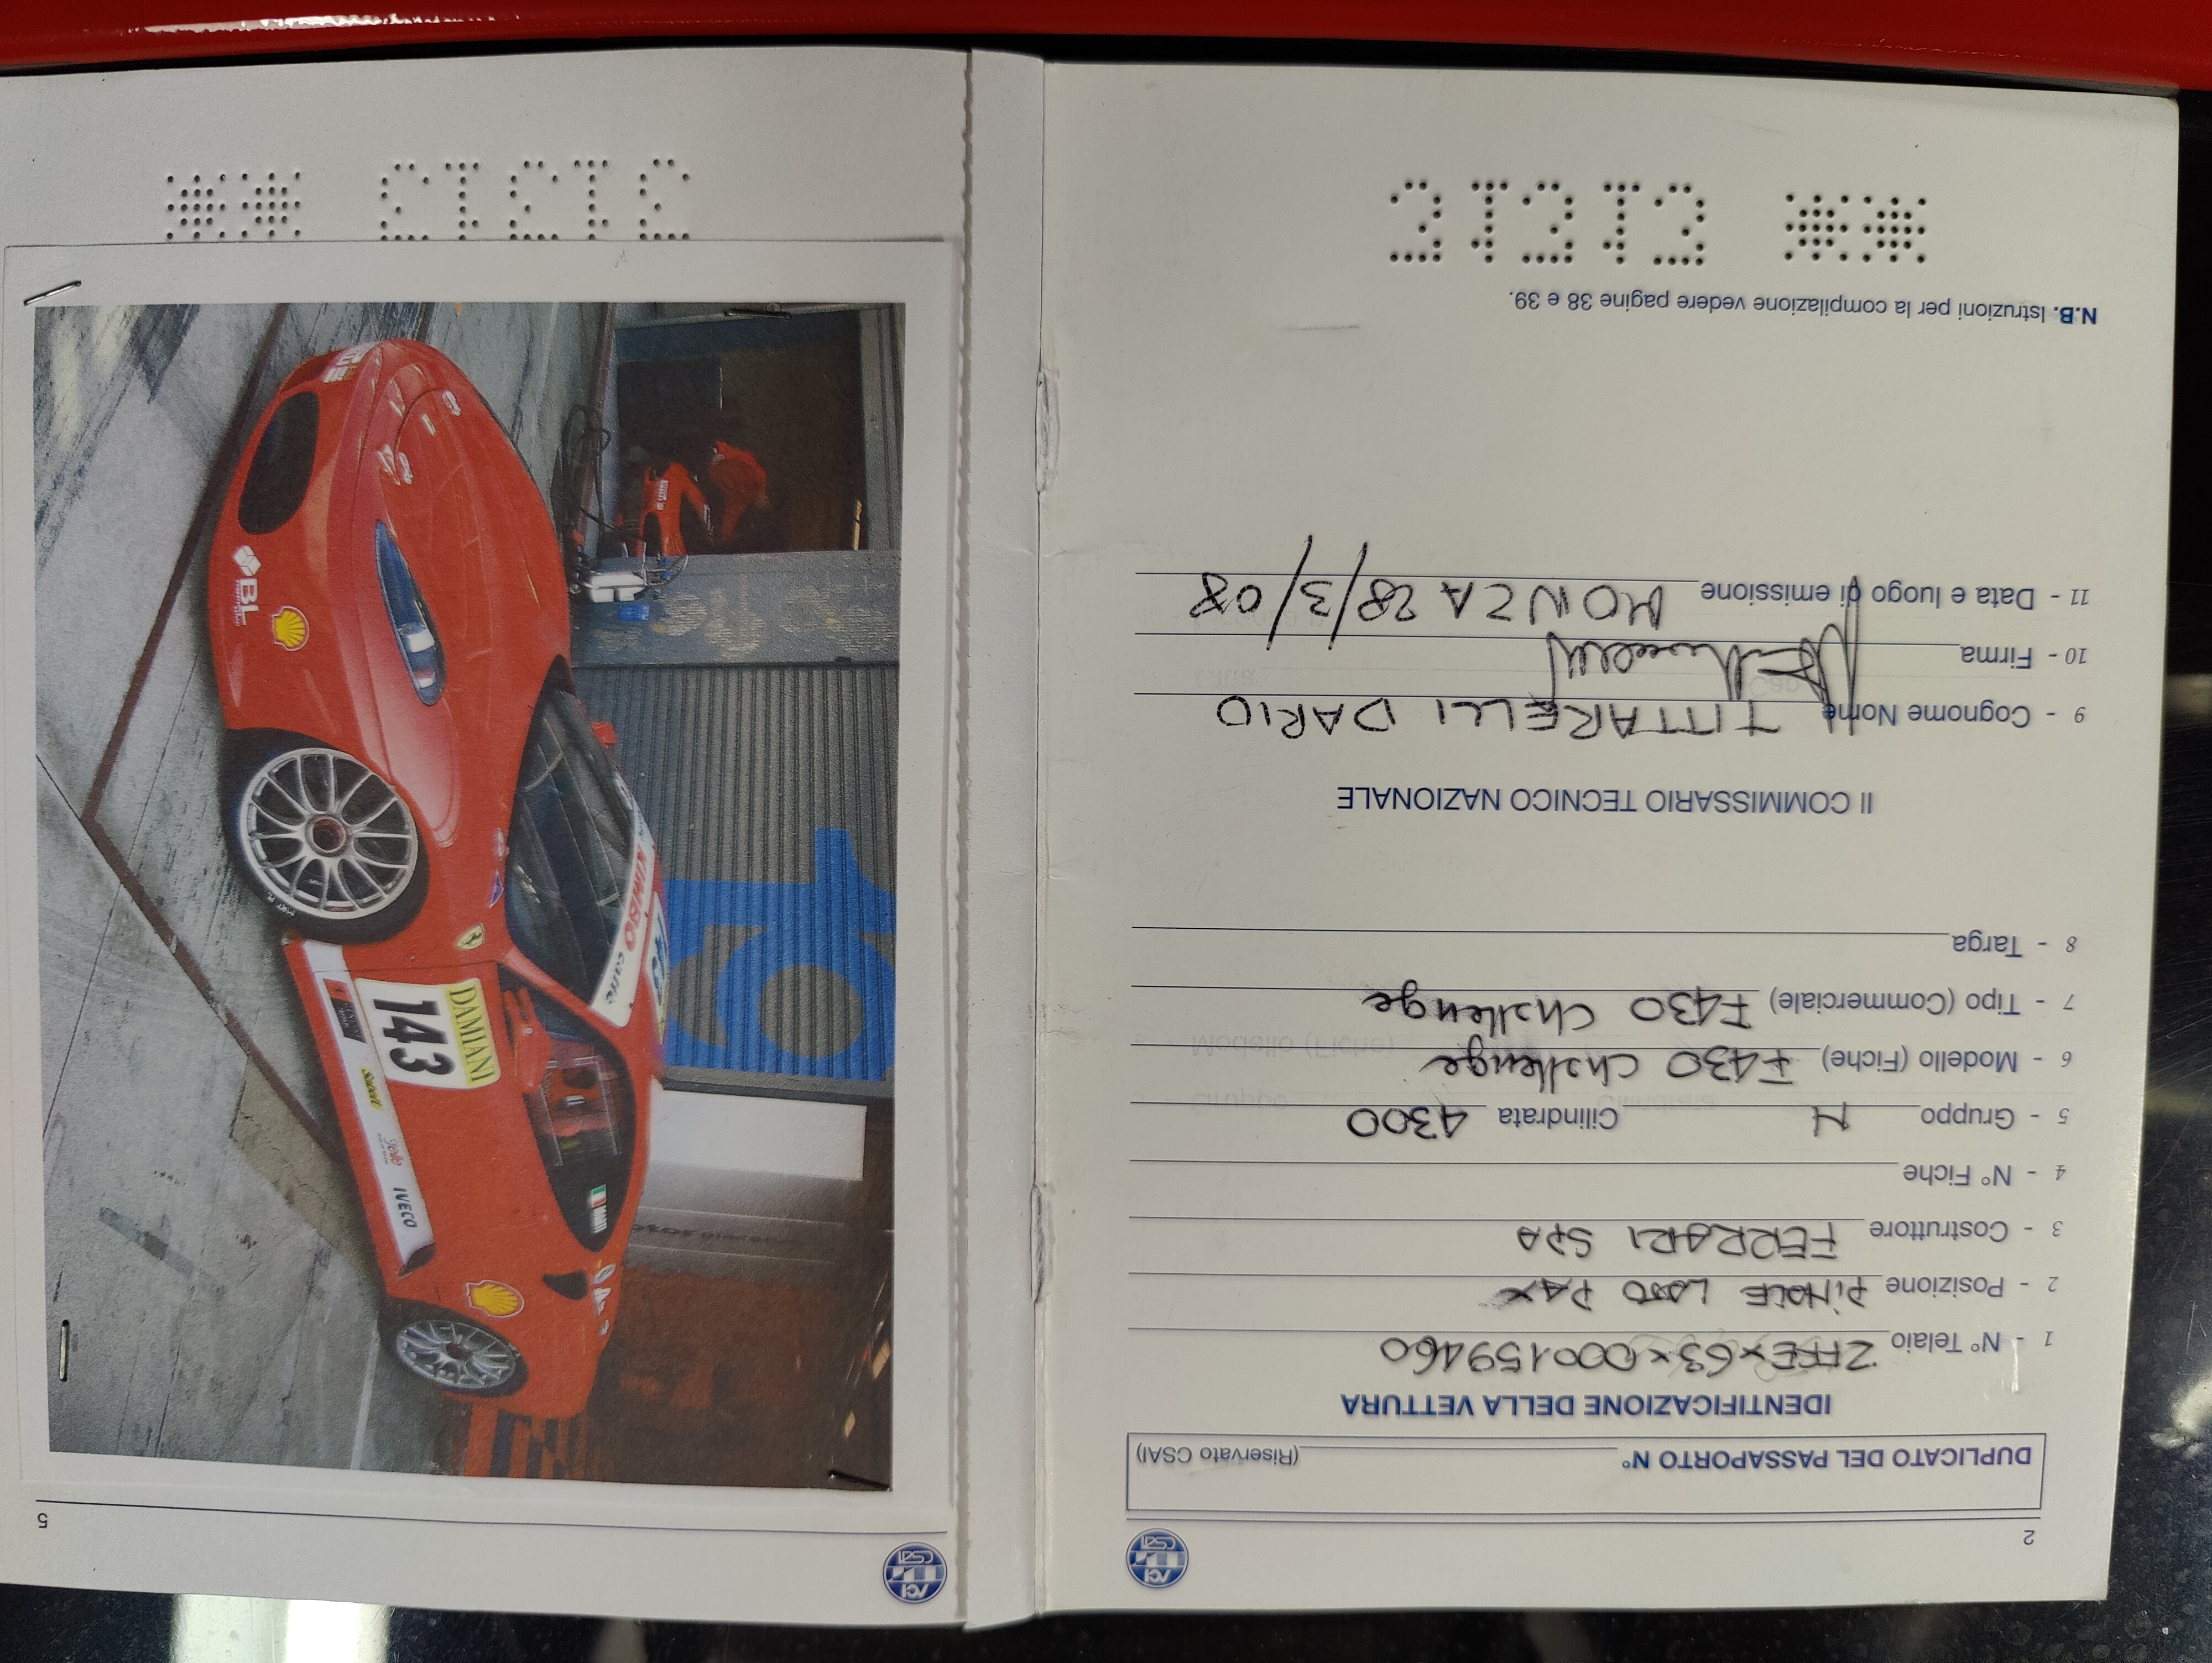 2
ACI
CSAI
DUPLICATO DEL PASSAPORTO N° (Riservato CSAI)
IDENTIFICAZIONE DELLA VETTURA
1 - N° Telaio ZFFEX63X000159460
2 - Posizione LATO PAX
3 - Costruttore FERRARI SPA
4 - N° Fiche
5 - Gruppo N Cilindrata 4300
6 - Modello (Fiche) F430 Challenge
7 - Tipo (Commerciale) F430 Challenge
8 - Targa
Il COMMISSARIO TECNICO NAZIONALE
9 - Cognome Nome TITTARELLI DARIO
10 - Firma
11 - Data e luogo di emissione MONZA 28/3/08
N.B. Istruzioni per la compilazione vedere pagine 38 e 39.
ACI
CSAI
5
KIMBO caffè
DAMIANI
143
IVECO
BL